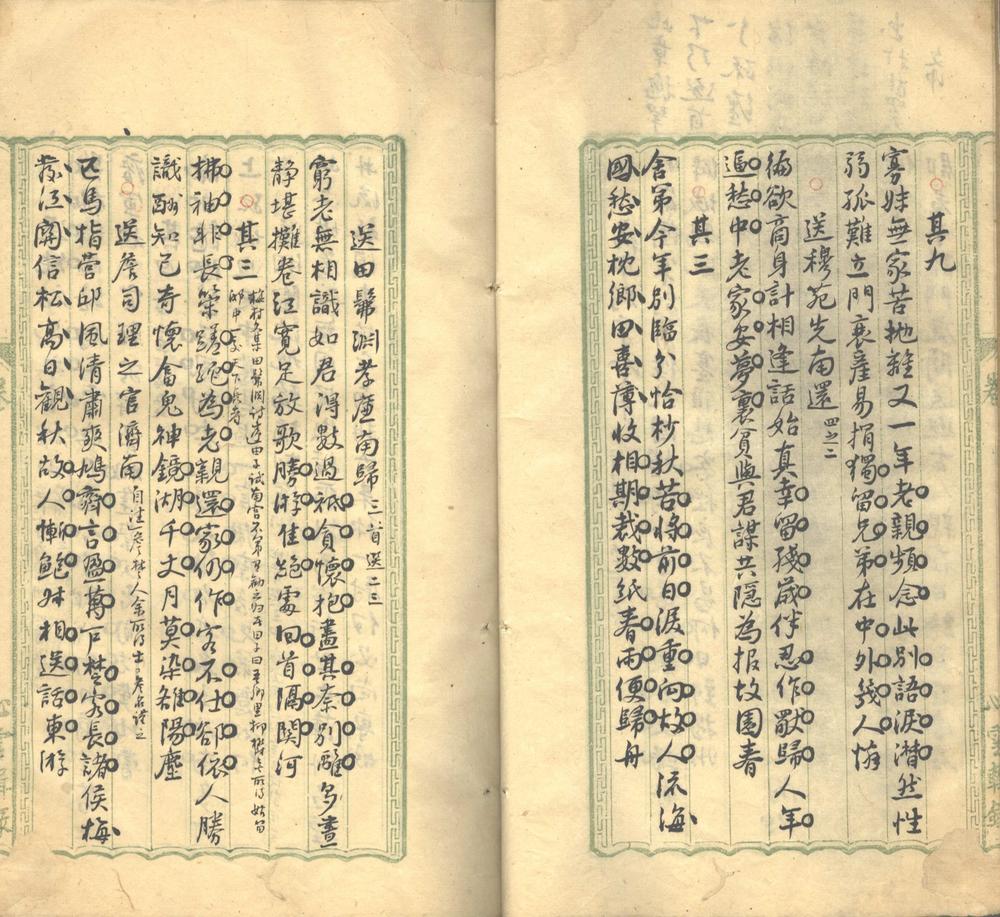 其九
寡妹無家苦拋離又一年老親頻念此別語淚潸然性
弱孤難立門衰產易捐獨留兄弟在中外幾人憐
送穆苑先南還四之二
偏欲商身計相逢話始真幸留殘歲伴忍作獻歸人年
逼愁中老家安夢裏貧與君謀共隱為報故園春
其三
舍弟今年別臨分恰杪秋苦將前日淚重向故人流海
國愁安枕鄉田喜薄收相期裁數紙春雨便歸舟
送田髴淵孝廉南歸三首選二三
窮老無相識如君得數過祗貪懷抱盡其奈別離多晝
靜堪攤卷江寬足放歌勝游佳絕處回首隔關河
其三 梅村文集田髴淵詩
拂袖非長策蹉跎為老親還家仍作客不仕卻依人勝
識酬知己奇懷會鬼神鏡湖千丈月莫染雒陽塵
送詹司理之官濟南
匹馬指營邱風清肅爽鳩齊言盈萬戶楚客長諸侯梅
發江關信松高日觀秋故人慚鮑叔相送話東游